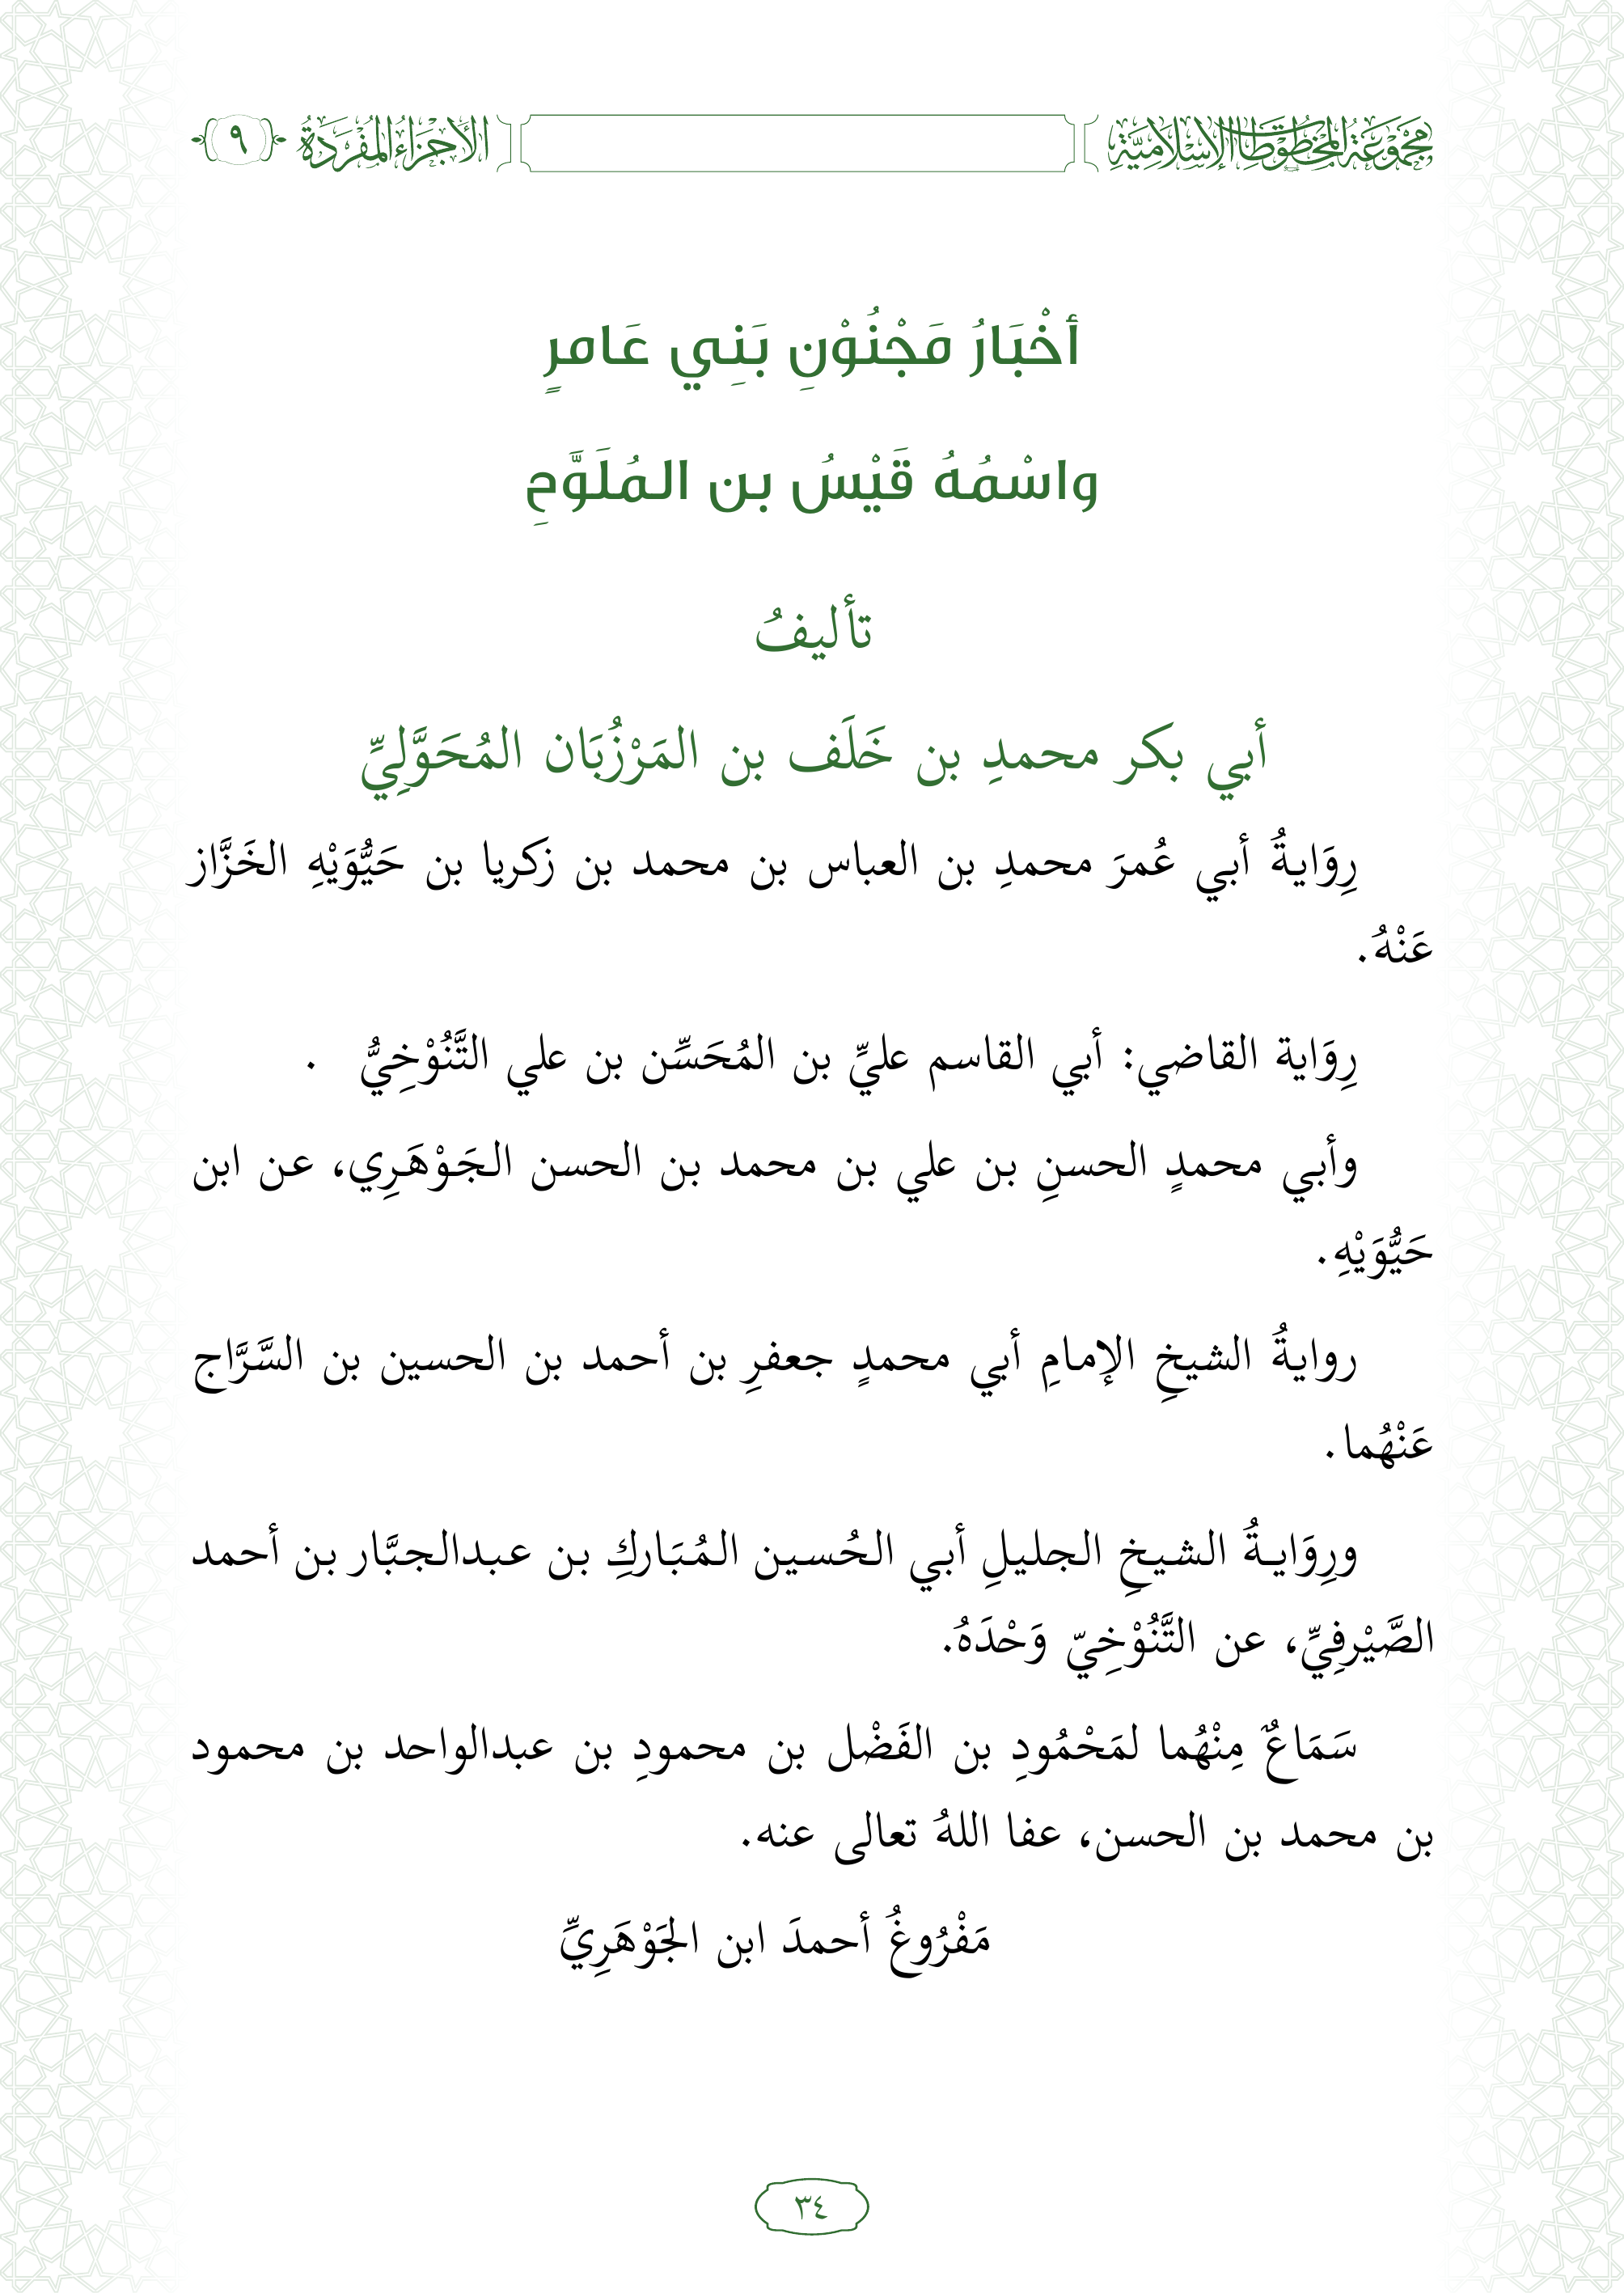 مَجْمُوعَةُ المَخْطُوطَاتِ الإِسْلَامِيَّةِ
الأَجْزَاءُ المُفْرَدَةُ
٩
أخْبَارُ مَجْنُوْنِ بَنِي عَامرٍ
واسْمُهُ قَيْسُ بن المُلَوَّحِ
تأليفُ
أبي بكر محمدِ بن خَلَف بن المَرْزُبَان المُحَوَّلِيِّ
رِوَايةُ أبي عُمرَ محمدِ بن العباس بن محمد بن زكريا بن حَيُّوَيْهِ الخَزَّاز
عَنْهُ.
رِوَاية القاضي: أبي القاسم عليِّ بن المُحَسِّن بن علي التَّنُوْخِيُّ .
وأبي محمدٍ الحسنِ بن علي بن محمد بن الحسن الجَوْهَرِي، عن ابن
حَيُّوَيْهِ.
روايةُ الشيخِ الإمامِ أبي محمدٍ جعفرِ بن أحمد بن الحسين بن السَّرَّاج
عَنْهُما.
ورِوَايةُ الشيخِ الجليلِ أبي الحُسين المُبَاركِ بن عبدالجبَّار بن أحمد
الصَّيْرفِيِّ، عن التَّنُوْخِيّ وَحْدَهُ.
سَمَاعٌ مِنْهُما لمَحْمُودِ بن الفَضْل بن محمودِ بن عبدالواحد بن محمود
بن محمد بن الحسن، عفا اللهُ تعالى عنه.
مَفْرُوغُ أحمدَ ابن الجَوْهَرِيِّ
٣٤